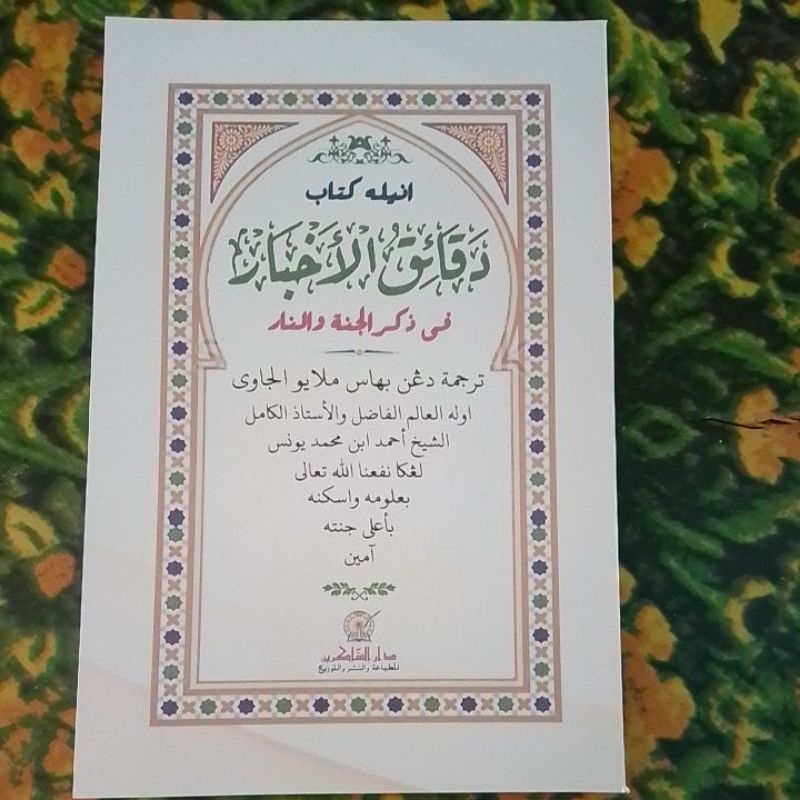 انيله كتاب
دَقَائِقُ الْأَخْبَارْ
فى ذكر الجنة والنار
ترجمة دڠن بهاس ملايو الجاوى
اوله العالم الفاضل والأستاذ الكامل
الشيخ أحمد ابن محمد يونس
لڠكا نفعنا الله تعالى
بعلومه واسكنه
بأعلى جنته
آمين
دار الشاكرين
للطباعة والنشر والتوزيع